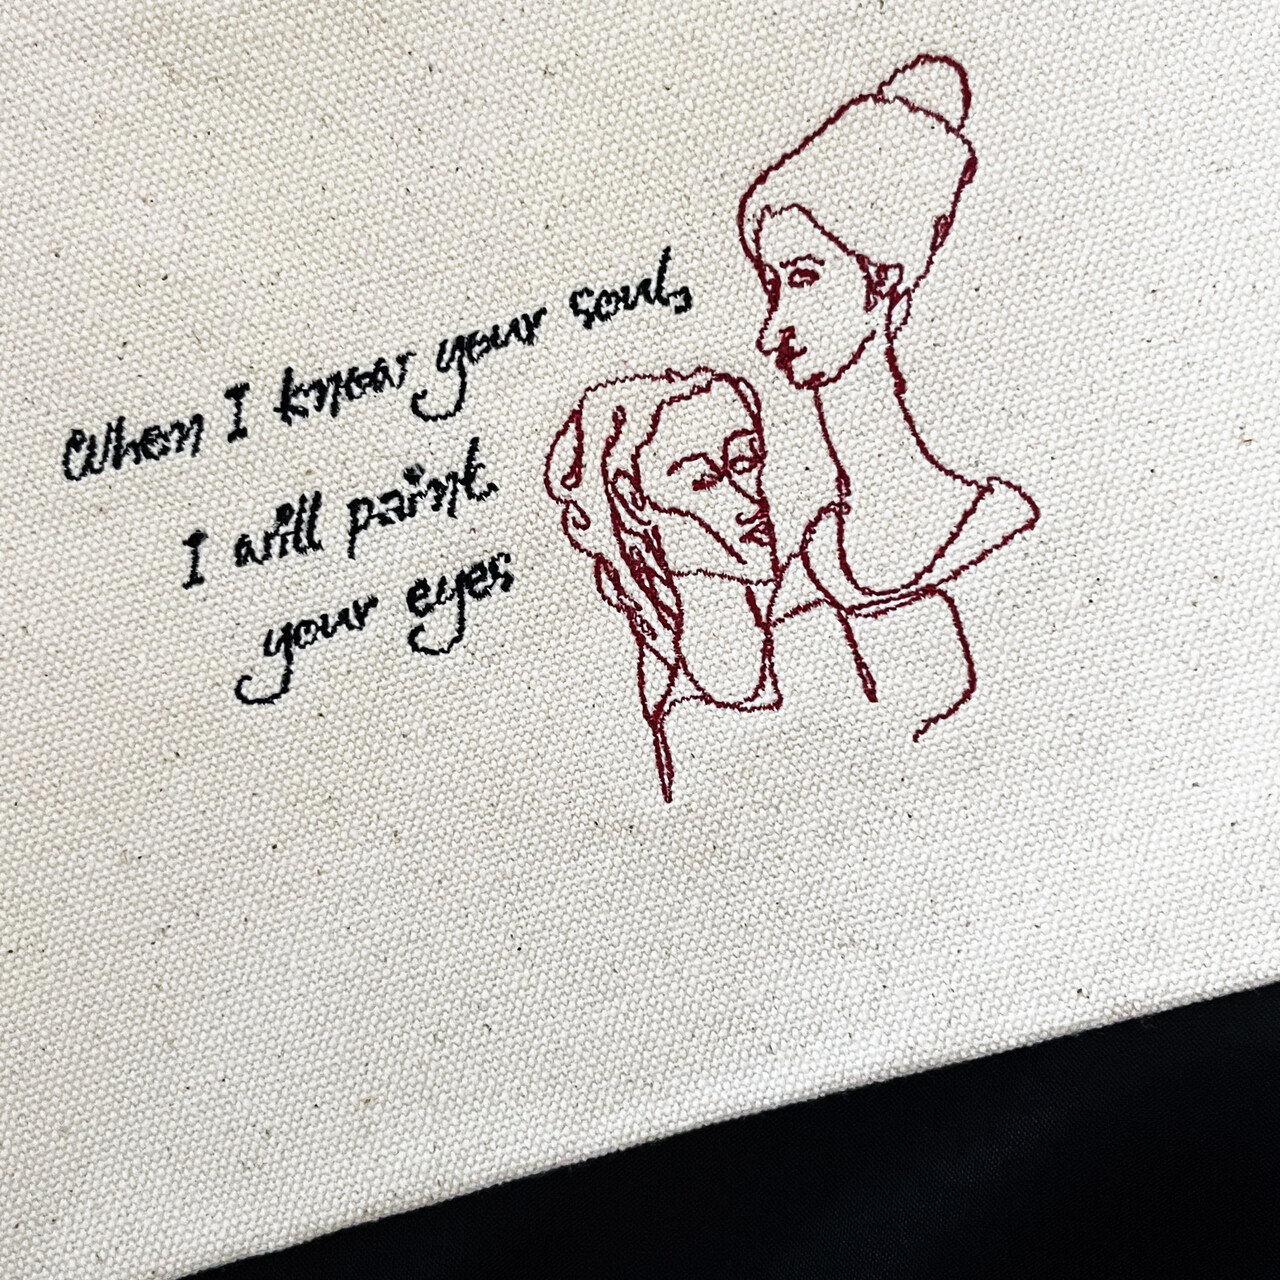 When I know your soul,
I will paint
your eyes